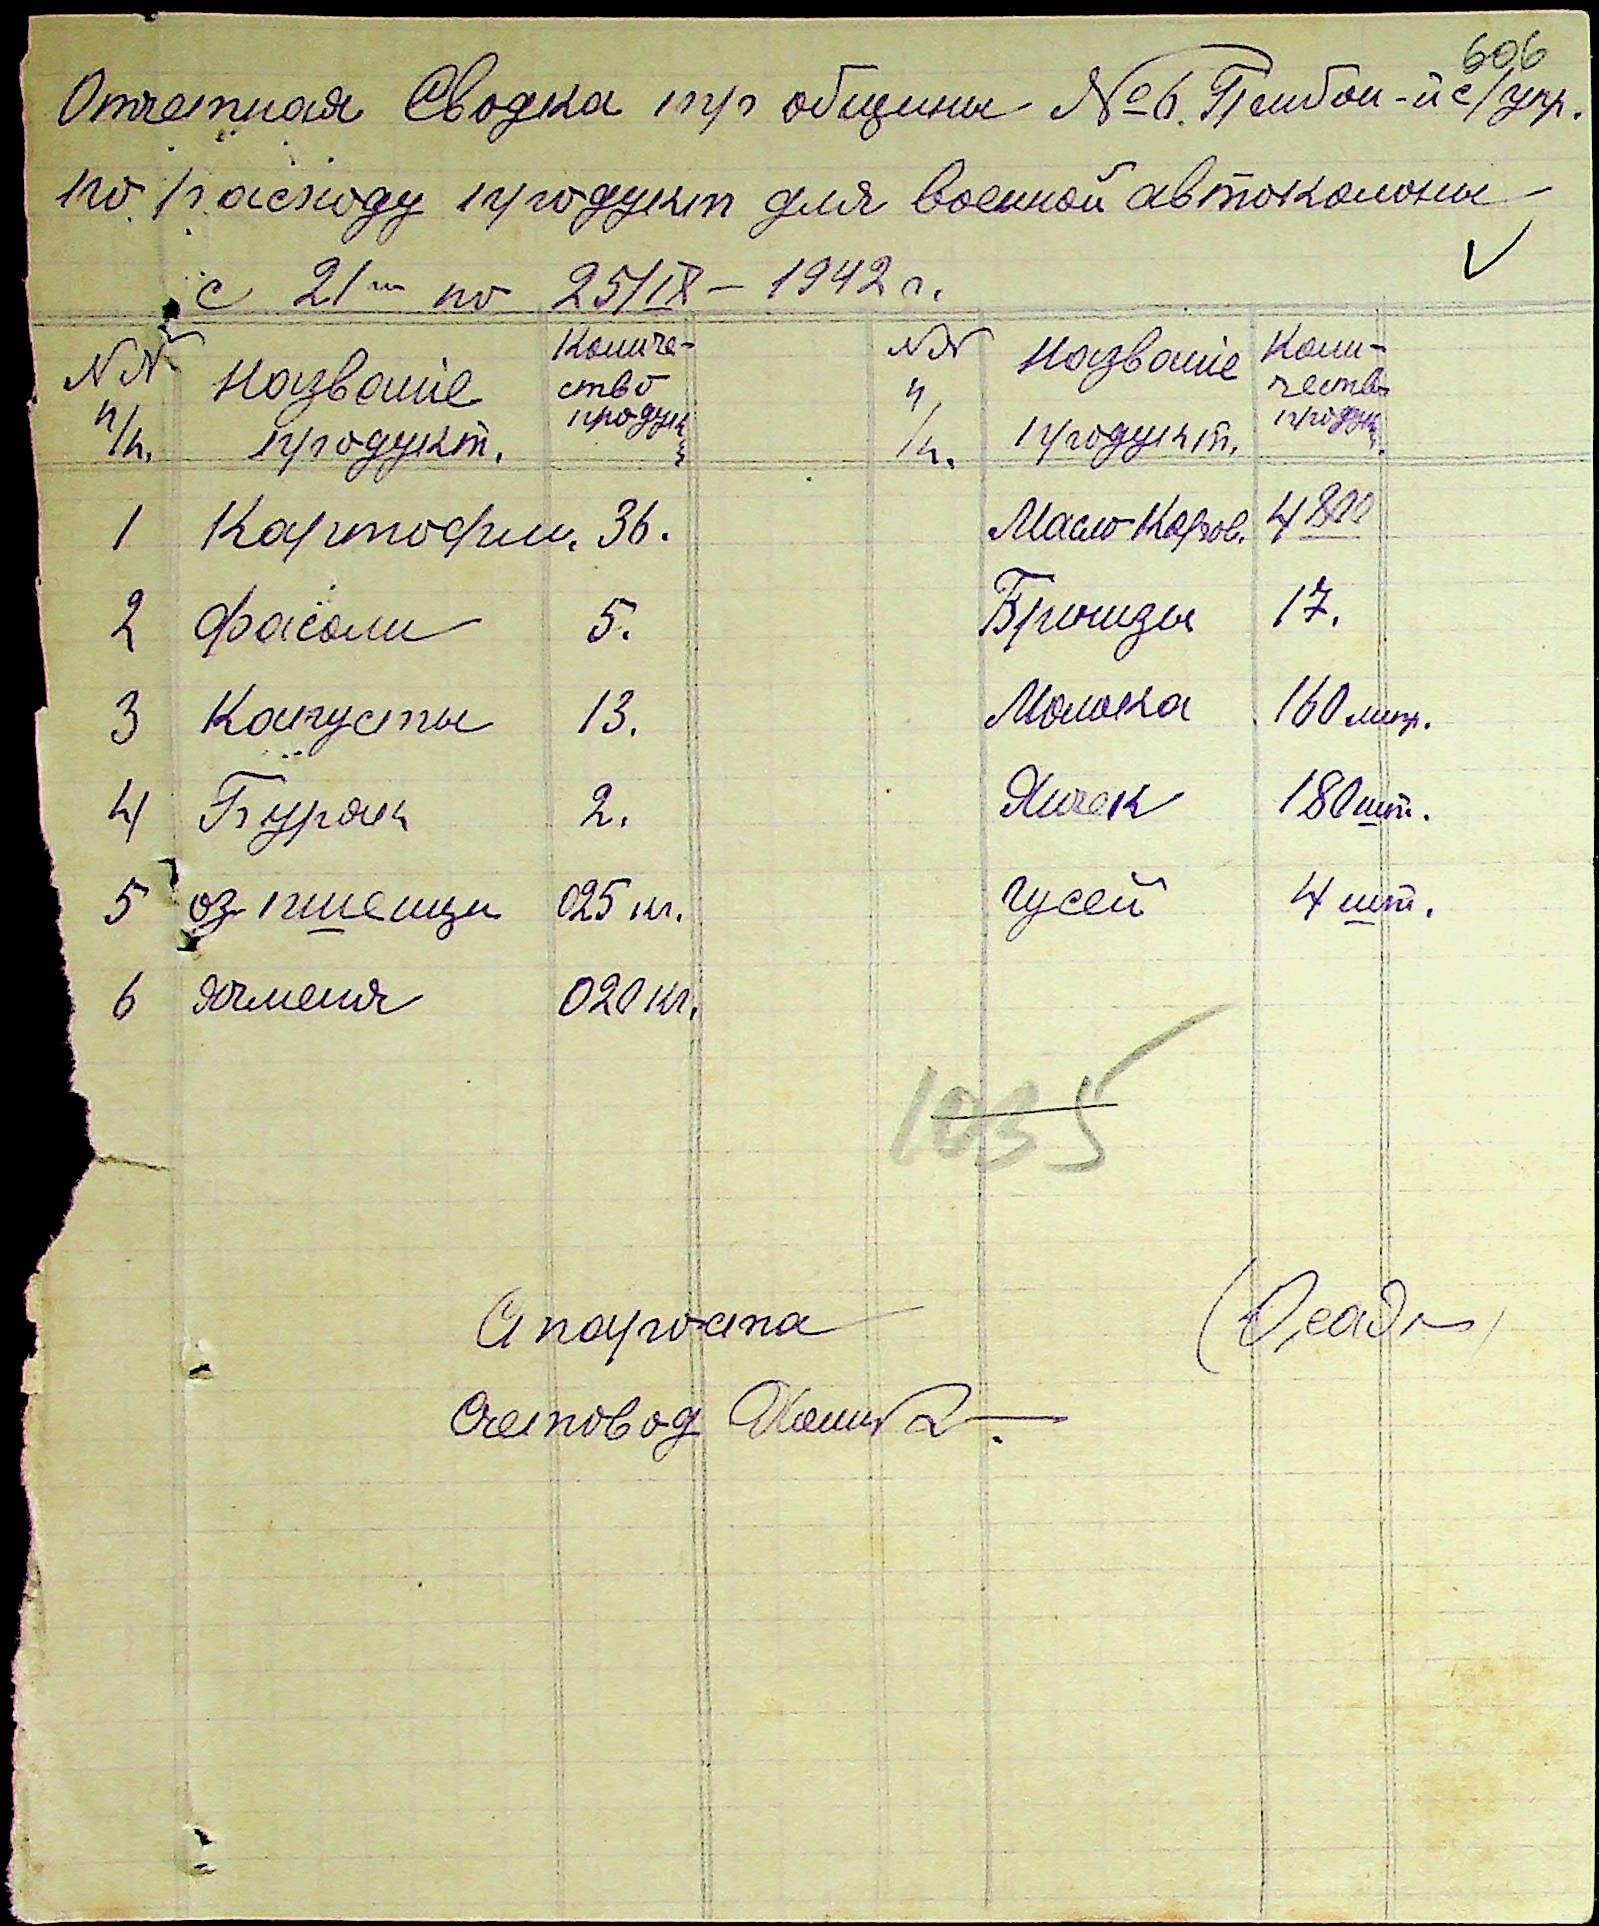 606
Отчетная Сводка тр общины №6. с/упр.
по расходу продукт для военной автоколоны
с 21го по 25/IX – 1942 г.
NN п/п. Название продукт. Количе-ство продук NN п/п. Название продукт. Коли-чество продук.
1 Картофил. 36. Масло Коров. 4800
2 фасоли 5. Брынзы 17.
3 Капусты 13. Молока 160 литр.
4 Буряк 2. Яичек 180 шт.
5 оз пшеницы 025 кг. гусей 4 шт.
6 ячменя 020 кг.
1035
Староста
Счетовод